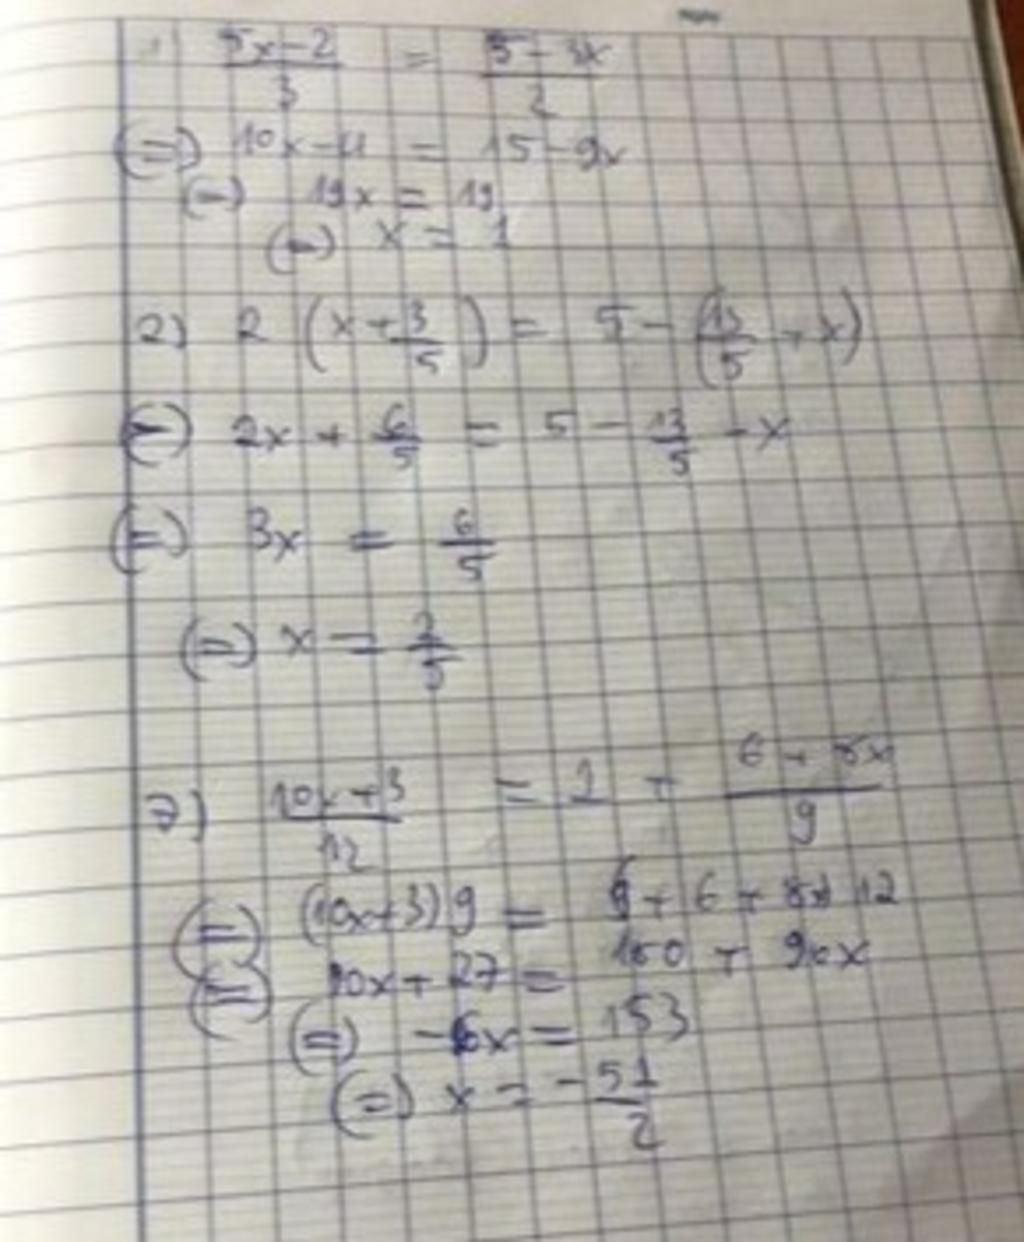 5x-2/3 = 5-3x/2
(=) 10x-4 = 15-9x
(=) 19x = 19
(=) x = 1
2) 2 (x+3/5) = 5 - (13/5 + x)
(=) 2x + 6/5 = 5 - 13/5 - x
(=) 3x = 6/5
(=) x = 2/5
10x+3/12 = 1 + 6+8x/9
(=) (10x+3)9 =
(=) 90x+27 = 180 + 96x
(=) -6x = 153
(=) x = -51/2